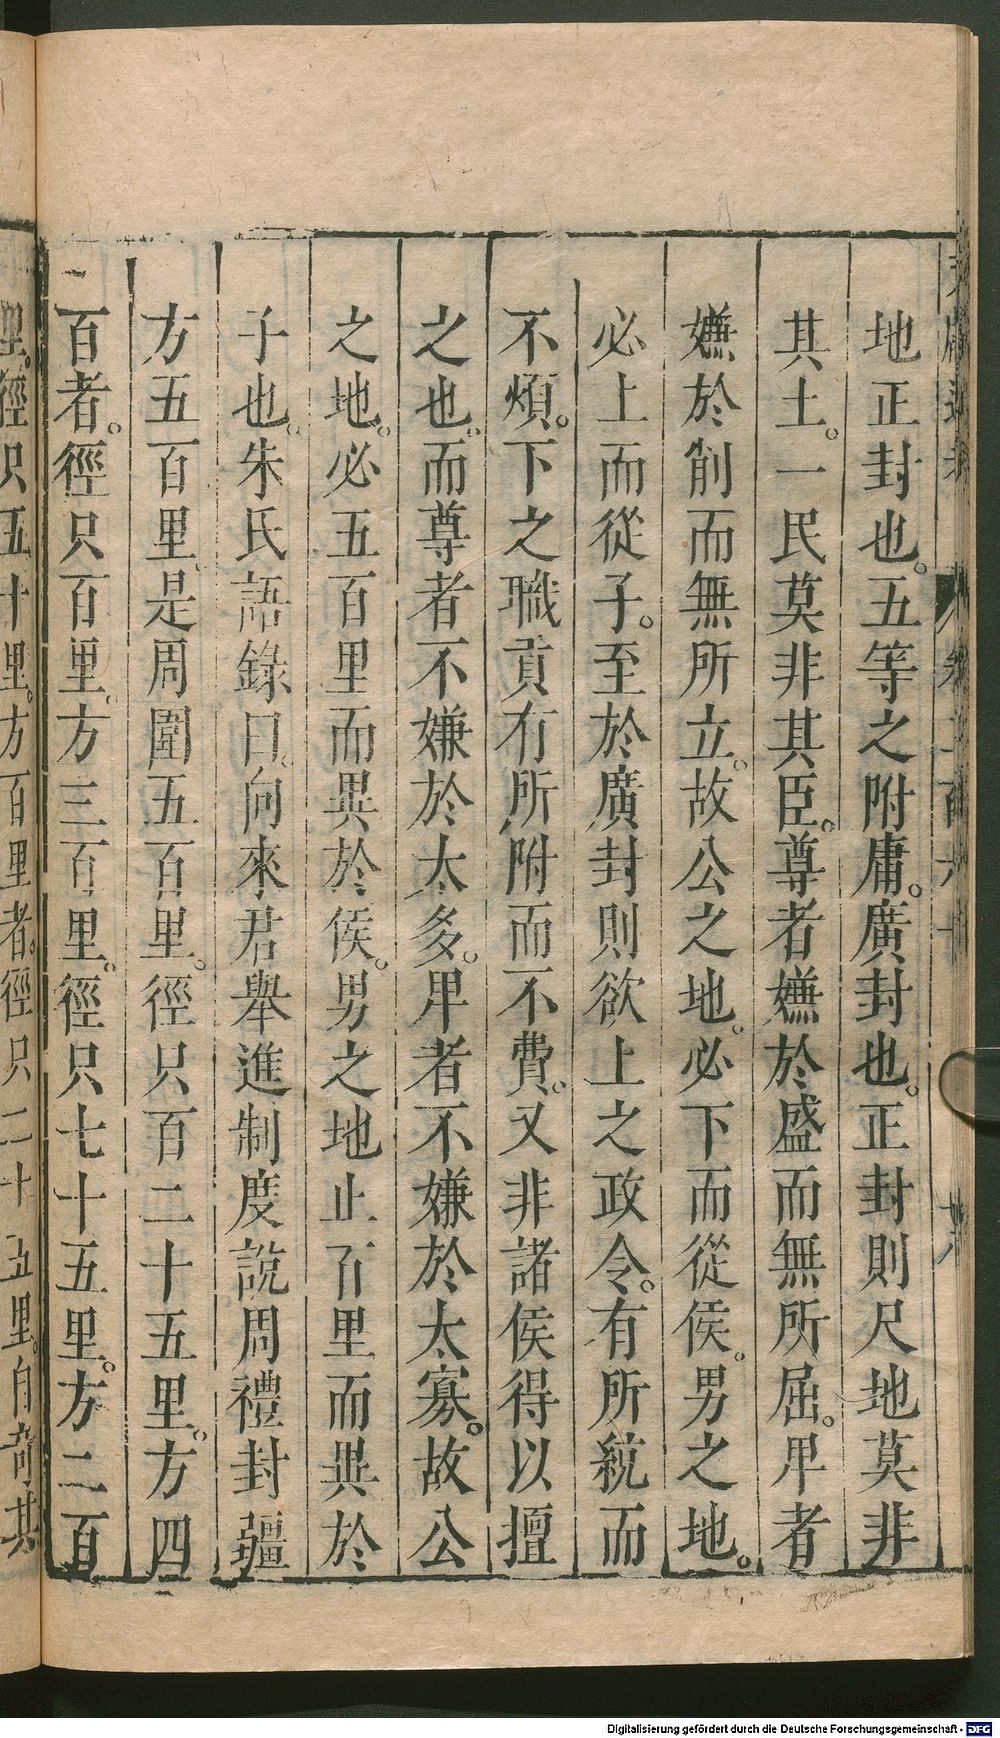 地正封也。五等之附庸。廣封也。正封則尺地莫非
其土。一民莫非其臣。尊者嫌於盛而無所屈。卑者
嫌於削而無所立。故公之地。必下而從侯。男之地。
必上而從子。至於廣封則欲上之政令。有所統而
不煩。下之職貢有所附而不費。又非諸侯得以擅
之也。而尊者不嫌於太多。卑者不嫌於太寡。故公
之地。必五百里而異於侯。男之地止百里而異於
子也。朱氏語錄曰。向來君舉進制度說周禮封疆
方五百里是周圍五百里。徑只百二十五里。方四
百者。徑只百里。方三百里。徑只七十五里。方二百
里。徑只五十里。方百里者。徑只二十五里。自奇其
Digitalisierung gefördert durch die Deutsche Forschungsgemeinschaft - DFG